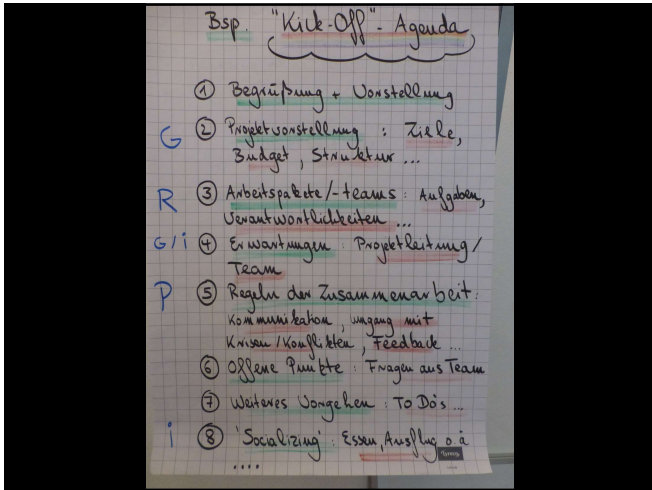 Bsp. "Kick-Off"-Agenda
① Begrüßung + Vorstellung
G ② Projektvorstellung : Ziele,
Budget, Struktur ...
R ③ Arbeitspakete/-teams : Aufgaben,
Verantwortlichkeiten ...
G/i ④ Erwartungen : Projektleitung/
Team
P ⑤ Regeln der Zusammenarbeit :
Kommunikation, Umgang mit
Krisen/Konflikten, Feedback ...
⑥ Offene Punkte : Fragen aus Team
⑦ Weiteres Vorgehen : To Do's ...
i ⑧ 'Socializing' : Essen, Ausflug o.ä
....